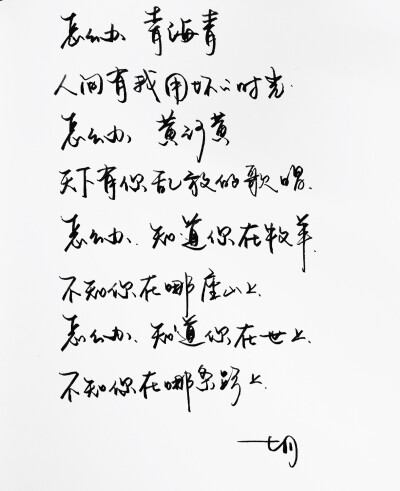 怎么办 青海青
人间有我用坏的时光
怎么办、黄河黄
天下有你乱放的歌唱
怎么办、知道你在牧羊
不知你在哪座山上
怎么办、知道你在世上
不知你在哪条路上
一七月